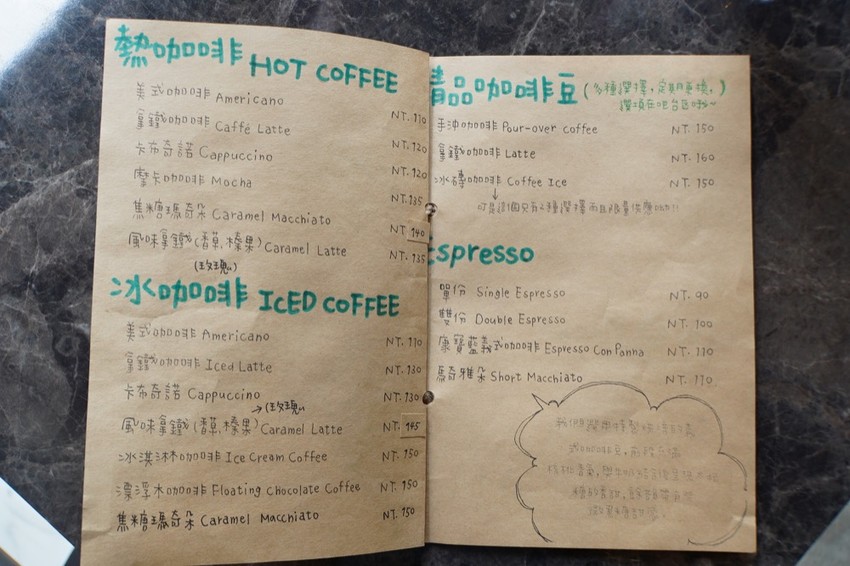 熱咖啡 HOT COFFEE
美式咖啡 Americano NT. 110
拿鐵咖啡 Caffé Latte NT. 120
卡布奇諾 Cappuccino NT. 120
摩卡咖啡 Mocha NT. 135
焦糖瑪奇朵 Caramel Macchiato NT. 140
風味拿鐵(香草,榛果) Caramel Latte NT. 135
(玫瑰)
冰咖啡 ICED COFFEE
美式咖啡 Americano NT. 110
拿鐵咖啡 Iced Latte NT. 130
卡布奇諾 Cappuccino NT. 130
→(玫瑰)
風味拿鐵(香草,榛果) Caramel Latte NT. 145
冰淇淋咖啡 Ice Cream Coffee NT. 150
漂浮冰咖啡 Floating Chocolate Coffee NT. 150
焦糖瑪奇朵 Caramel Macchiato NT. 150
精品咖啡豆 (多種選擇,定期更換,
選項在吧台區哦~)
手沖咖啡 Pour-over coffee NT. 150
拿鐵咖啡 Latte NT. 160
冰磚咖啡 Coffee Ice NT. 150
可是這個只有2種選擇而且限量供應
Espresso
單份 Single Espresso NT. 90
雙份 Double Espresso NT. 100
康寶藍義式咖啡 Espresso Con Panna NT. 110
瑪奇雅朵 Short Macchiato NT. 110
我們選用特製
式咖啡豆,前段